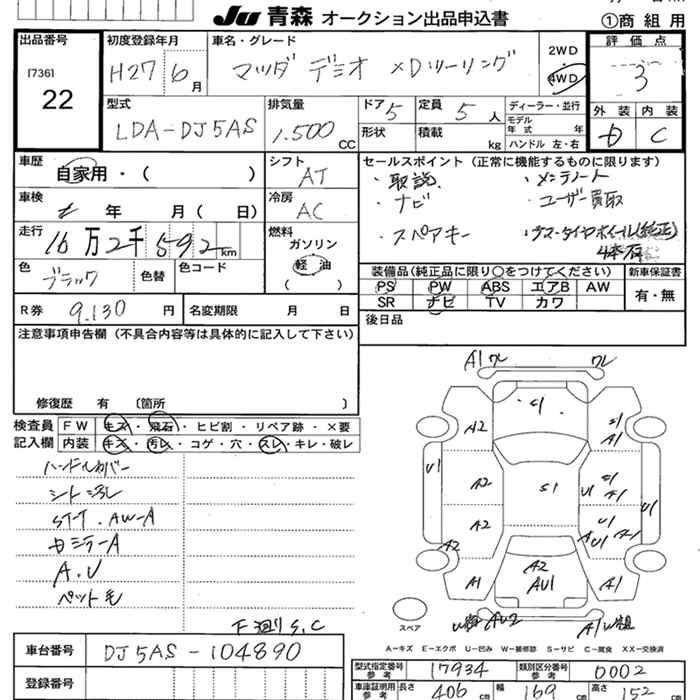 JU 青森 オークション出品申込書
①商組用
出品番号
17361
22
初度登録年月
H27 6月
車名・グレード
マツダ デミオ XDツーリング
2WD
・
4WD
評価点
3
外装
内装
D
C
型式
LDA-DJ5AS
排気量
1.500 CC
ドア 5
定員 5 人
形状
積載 kg
ディーラー・並行
モデル
年式 年
ハンドル 左・右
車歴
自家用・( )
シフト
AT
車検
年 月 ( 日)
冷房
AC
走行
16万2千592 km
燃料
ガソリン
軽油
( )
色
ブラック
色替
色コード
R券 9.130 円
名変期限 月 日
セールスポイント (正常に機能するものに限ります)
・取説
・メンテノート
・ナビ
・ユーザー買取
・スペアキー
・夏スタッドレスタイヤホイール(純正)
4本有
装備品(純正品に限り○をつけてください)
PS PW ABS エアB AW
SR ナビ TV カワ
新車保証書
有・無
後日品
注意事項申告欄 (不具合内容等は具体的に記入して下さい)
修復歴 有 〔箇所 〕
検査員
記入欄
FW キズ・飛石・ヒビ割・リペア跡・×要
内装 キズ・汚レ・コゲ・穴・スレ・キレ・破レ
ハンドルカバー
シート汚れ
ST-T . AW-A
A.U
ペット毛
下廻りS.C
A1 ワレ
ワレ
C1
A2
U1
A2
S1
U1
A1
U1
A2
A2
U1
A1
AU1
A2
A1
A2
AU1
A1
スペア
A-キズ E-エクボ U-凹み W-補修跡 S-サビ C-腐食 XX-交換済
車台番号
DJ5AS-104890
登録番号
型式指定番号
参考
17934
類別区分番号
参考
0002
車庫証明用
参考
長さ 406 cm
幅 169 cm
高さ 152 cm